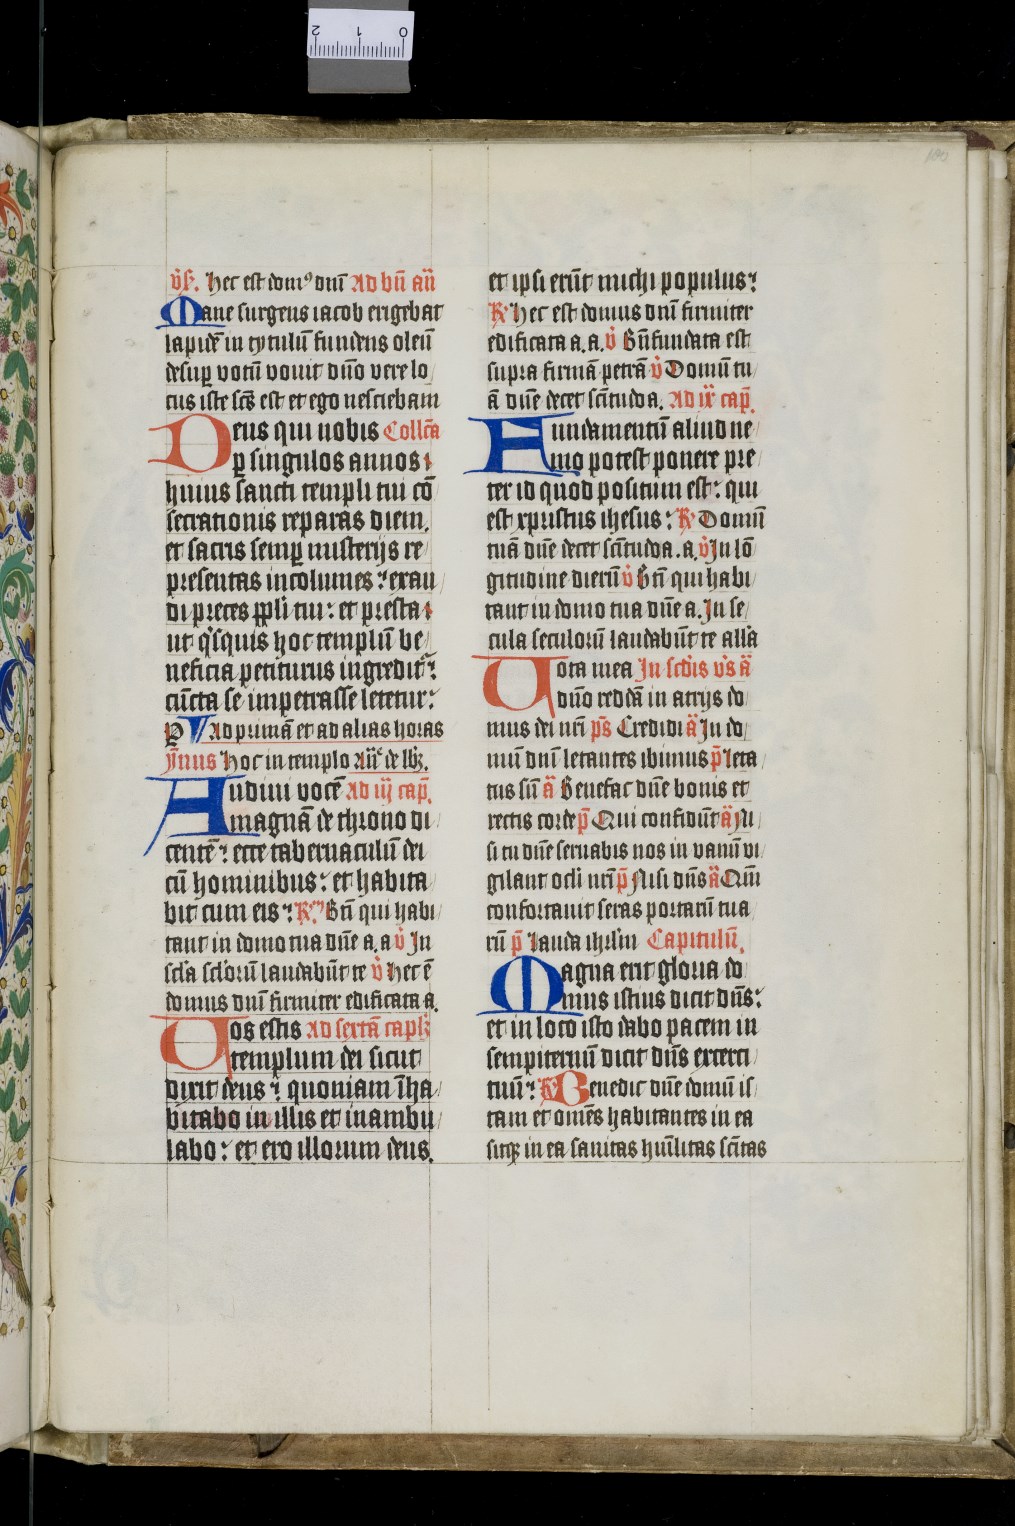 v̉s̉. Hec est domꝰ dn̄i Ad bn̄ an̄
Mane surgens iacob erigebat
lapidē in tytulū fundens oleū
desuꝑ votū vouit dn̄o vere lo
cus iste scūs est et ego nesciebam
Deus qui nobis Collc̄a
ꝑ singulos annos
huius sancti templi tui cō
secrationis reparas diem.
et sacris semꝑ misterijs re
presentas incolumes: exau
di preces ppl̉i tui: et presta
ut qͥsquis hoc templū be
neficia petiturus ingreditᷣ:
cūcta se impetrasse letetur:
Ad primā et ad alias horas
ẏmus Hoc in templo An̄ͤ de lbꝫ.
Audiui vocē Ad iij cap̄.
magnā de throno di
centē: ecce tabernaculū dei
cū hominibus: et habita
bit cum eis: R̉ Bt̄i qui habi
tant in domo tua dn̄e a. a v̉ In
scl̉a scl̉orū laudabūt te v̉ Hec ē
domus dn̄i firmiter edificata a.
Vos estis Ad sextā capl̉
templum dei sicut
dixit deus: quoniam īha
bitabo in illis et inambu
labo: et ero illorum deus.
et ipsi erūt michi populus:
R̉ Hec est domus dn̄i firmiter
edificata a. a. v̉ Bn̄fundata est
supra firmā petrā v̉ Domū tu
ā dn̄e decet sc̄itudo a. Ad ix cap̄.
Fundamentū aliud ne
mo potest ponere pre
ter id quod positum est: qui
est xpristus ihesus: R̉ Domū
tuā dn̄e decet sc̄itudo a. a. v̉ In lō
gitudine dierū v̉ Bt̄i qui habi
tant in domo tua dn̄e a. In se
cula seculorū laudabūt te all̉a
Vota mea In scd̉is v̉s ā
dn̄o reddā in atrijs do
mus dei nr̄i p̄s Credidi ā In do
mū dn̄i letantes ibimus p̄ Leta
tus sū ā Benefac dn̄e bonis et
rectis corde p̄ Qui confidūt ā Ni
si tu dn̄e seruabis nos in vanū vi
gilant ocl̉i nr̄i p̄ Nisi dn̄s ā Qm̄
confortauit seras portarū tua
rū p̄ Lauda ihrl̄m Capitulū.
Magna erit gloria do
mus istius dicit dn̄s:
et in loco isto dabo pacem in
sempiternū dicit dn̄s exerci
tuū: R̉ Benedic dn̄e domū is
tam et om̄es habitantes in ea
sitqꝫ in ea sanitas hūilitas sc̄itas